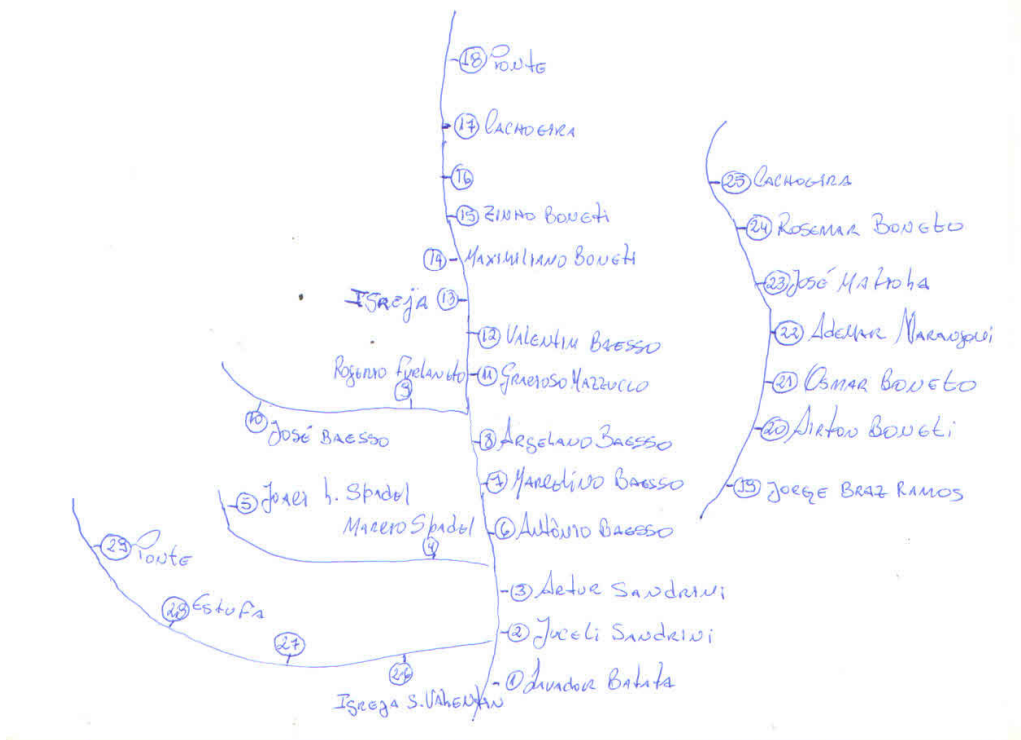 18 Ponte
17 CACHOEIRA
16
15 ZINHO BONETI
14 MAXIMILIANO BONETI
IGREJA 13
12 VALENTIM BAESSO
Rogerio Furlaneto 9
11 GRACIOSO MAZZUCCO
10 JOSÉ BAESSO
8 ARGELANO BAESSO
7 MARCELINO BAESSO
5 Joaci L. Spadel
Marcio Spadel 4
6 Antônio BAESSO
3 Artur SANDRINI
2 Juceli SANDRINI
1 Lavador Batata
29 Ponte
28 Estufa
27
26
IGREJA S. VALENTAN
25 CACHOEIRA
24 ROSEMAR BONETO
23 José Matioha
22 Ademar Marangoni
21 OSMAR BONETO
20 Airton BONETI
19 JORGE BRAZ RAMOS